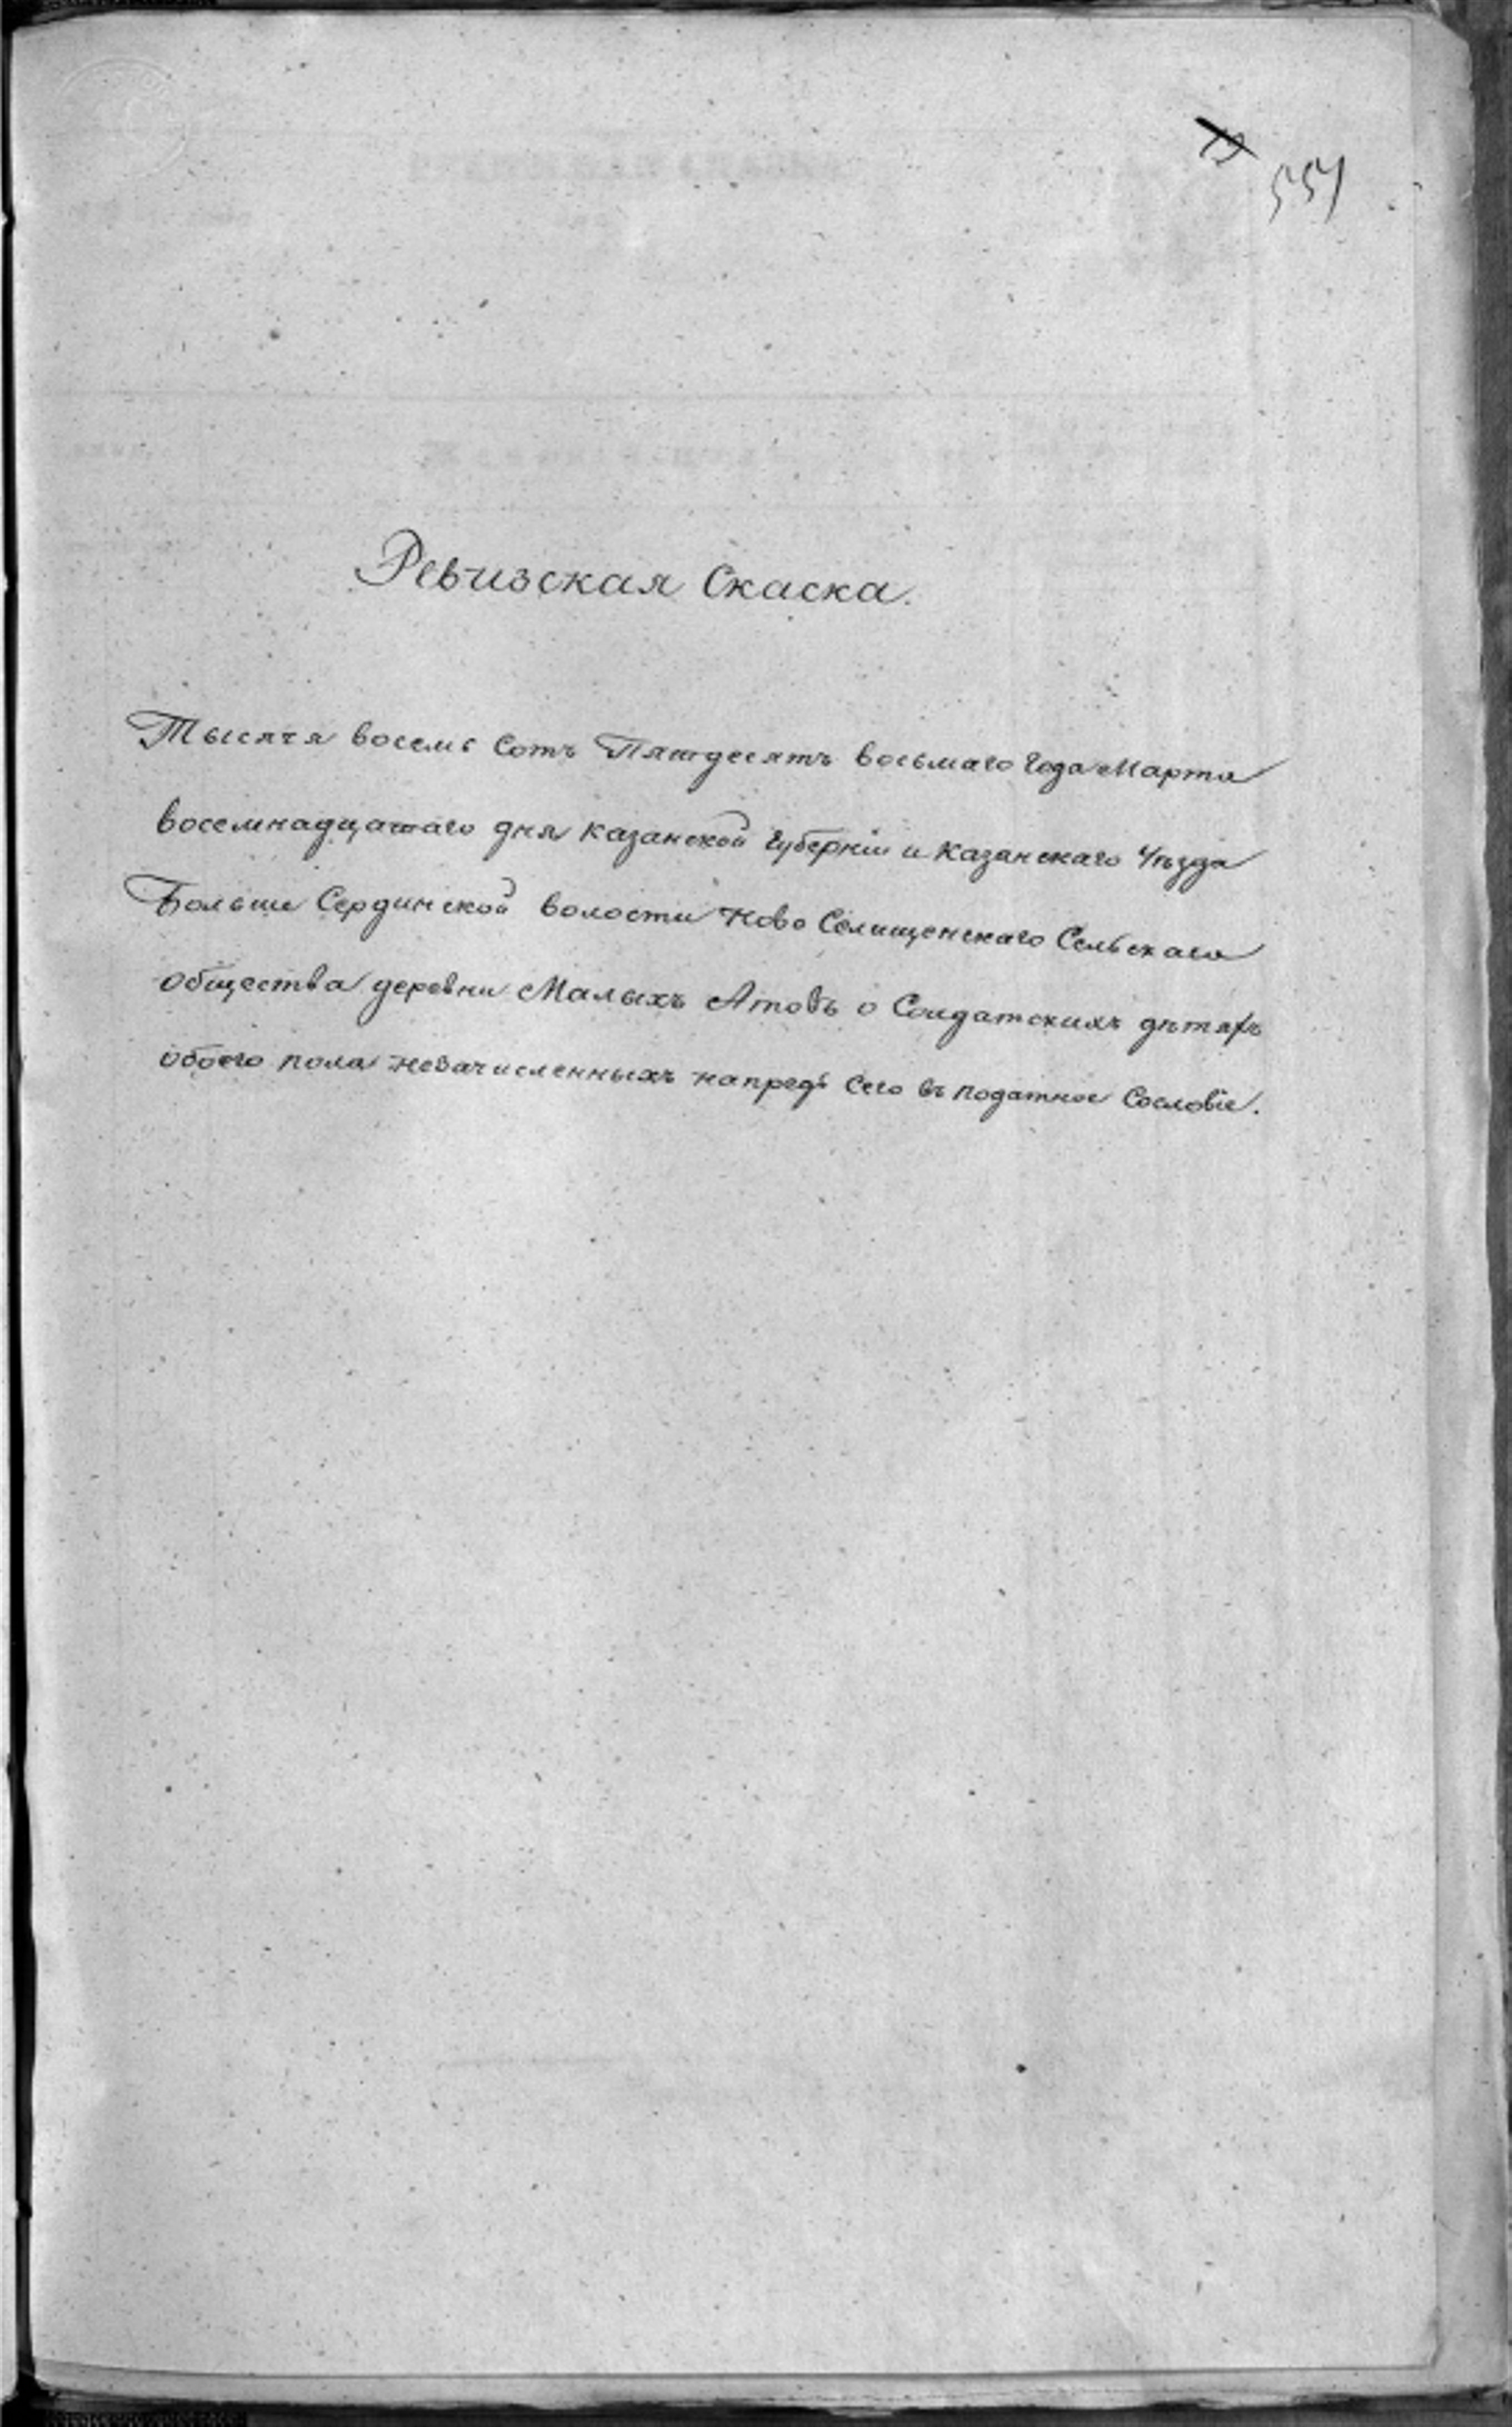 551
Ревизская Скаска.
Тысяча восемь Сотъ Пятдесятъ восьмаго Года Марта
восемнадцатаго дня Казанской Губерніи и Казанскаго Уѣзда
Больше Сердинской волости Ново Селищенскаго Сельскаго
общества деревни Малыхъ Атовъ о Солдатскихъ дѣтяхъ
обоего пола незачисленныхъ напредь Сего въ податное Сословіе.